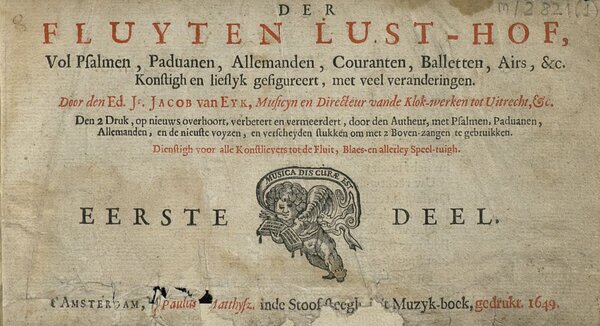 8
DER
m/2821(I)
FLUYTEN LUST-HOF,
Vol Psalmen, Paduanen, Allemanden, Couranten, Balletten, Airs, &c.
Konstigh en lieflyk gefigureert, met veel veranderingen.
Door den Ed. Jr. JACOB van EYK, Musicyn en Directeur vande Klok-werken tot Uitrecht, &c.
Den 2 Druk, op nieuws overhoort, verbetert en vermeerdert, door den Autheur, met Psalmen. Paduanen,
Allemanden, en de nieuste voyzen, en verscheyden stukken om met 2 Boven-zangen te gebruikken.
Dienstigh voor alle Konstlievers tot de Fluit, Blaes-en allerley Speel-tuigh.
MUSICA DIS CURÆ EST
EERSTE DEEL.
t'AMSTERDAM, Paulus Matthysz. inde Stoof-steegh, Muzyk-boek, gedrukt. 1649.